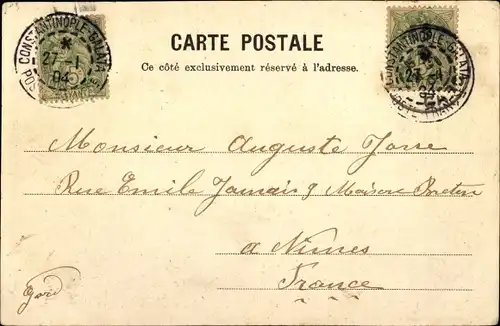 CONSTANTINOPLE-GALATA
27-1
04
CONSTANTINOPLE-GALATA
27-1
04
CARTE POSTALE
Ce côté exclusivement réservé à l'adresse.
Monsieur Auguste
Rue Emile Jamais 9 Maison
a Nimes
France
Gard